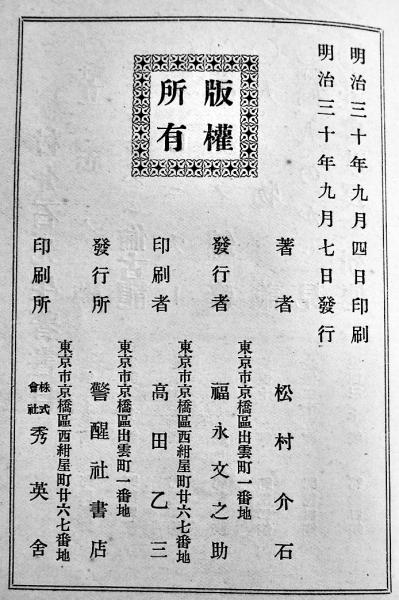 明治三十年九月四日印刷
明治三十年九月七日發行
版權
所有
著者 松村介石
東京市京橋區出雲町一番地
發行者 福永文之助
東京市京橋區西紺屋町廿六七番地
印刷者 高田乙三
東京市京橋區出雲町一番地
發行所 警醒社書店
東京市京橋區西紺屋町廿六七番地
印刷所 株式會社 秀英舍